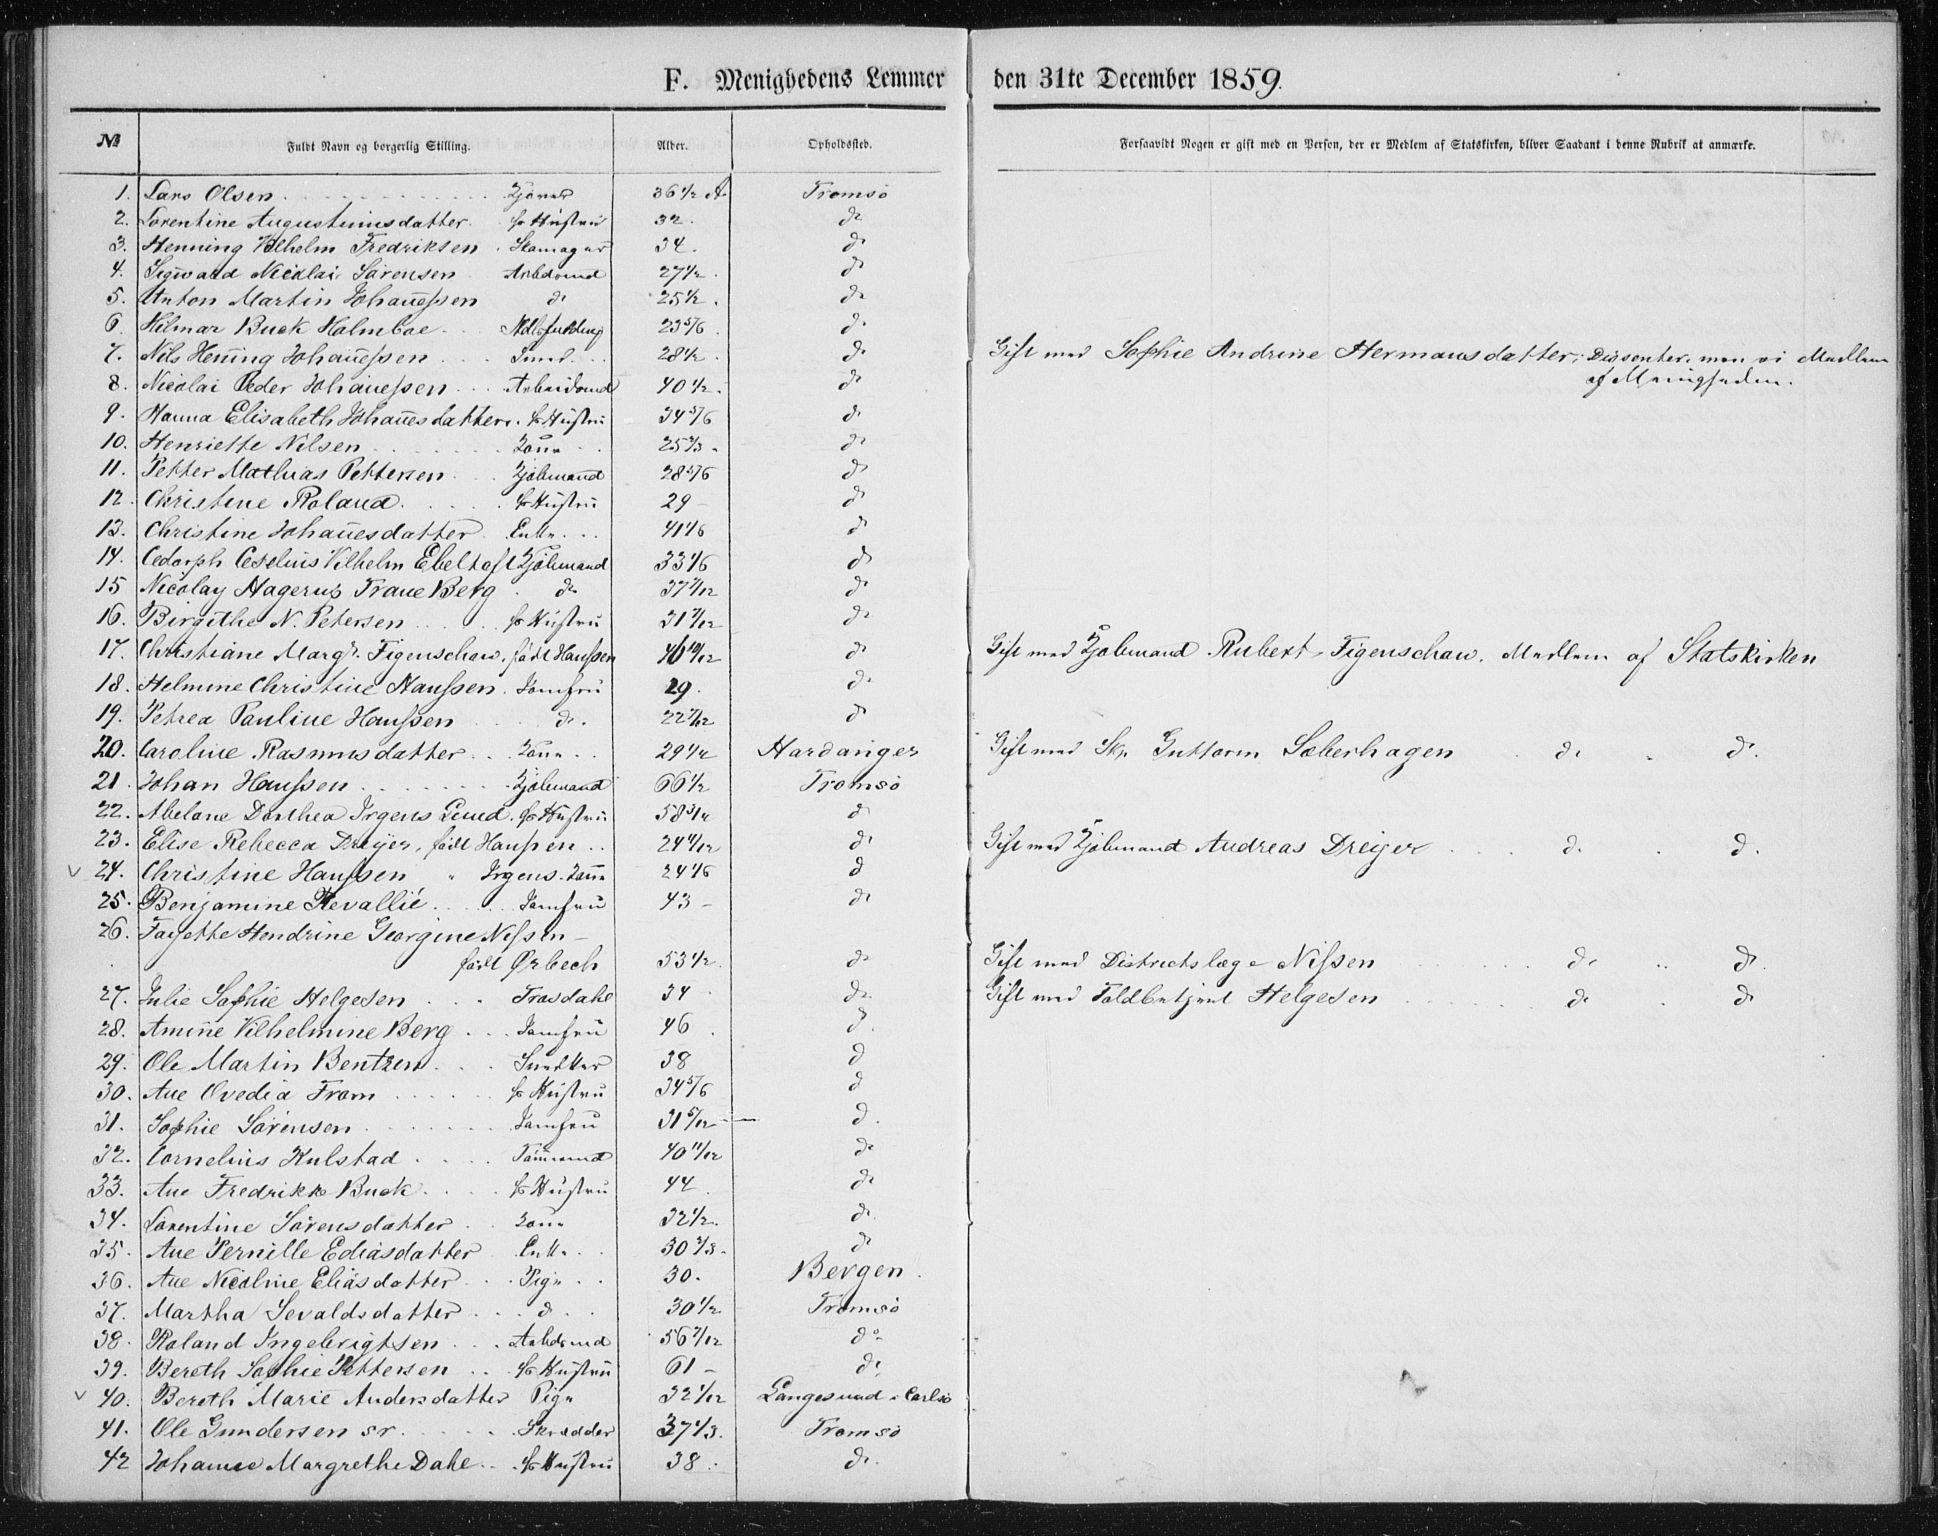 F. Menighedens Lemmer den 31te December 1859.
№ Fuldt Navn og borgerlig Stilling. Alder. Opholdssted. Forsaavidt Nogen er gift med en Person, der er Medlem af Statskirken, bliver Saadant i denne Rubrik at anmærke.
1. Lars Olsen 36 1/2 A Tromsö
2. Lorentine Augustinusdatter Hustru 32. do
3. Henning Vilhelm Fredriksen Skomager 34. do
4. Sigvard Nicolai Sørensen Arbdsmd 27 1/2. do
5. Anton Martin Johannessen do 25 1/2. do
6. Hilmar Buck Holmboe 23 5/6 do
7. Nils Hening Johannessen Smed 28 1/2. do Gift med Sophie Andrine Hermansdatter, Dissenter, men ei Medlem
af Menigheden.
8. Nicolai Peder Johannessen Arbeidsmd 40 1/2. do
9. Hanna Elisabeth Johannesdatter. Hustru 34 5/6 do
10. Henriette Nilsen Kone 25 2/3. do
11. Petter Mathias Pettersen Kjöbmand 28 5/6 do
12. Christine Roland. Hustru 29 – do
13. Christine Johannesdatter Enke 41 1/6 do
14. Cedorph Ceselius Vilhelm Ebeltoft Kjöbmand 33 1/6 do
15 Nicolay Hagerup Frane Berg do 37 7/12 do
16. Birgithe N. Petersen Hustru 31 7/12 do
17. Christiane Margr. Figenschau, født Hanssen 46 10/12 do Gift med Kjöbmand Rubert Figenschau. Medlem af Statskirken
18. Helmine Christine Hanssen. Jomfru 29. do
19. Petrea Pauline Hanssen do. 22 7/12 do
20. Caroline Rasmusdatter Kone 29 1/4 Hardanger Gift med Guttorm Sæberhagen do. do.
21. Johan Hanssen Kjöbmand 66 1/2 Tromsö
22. Abelone Dorthea Irgens Lund. Hustru 58 3/4 do
23. Elise Rebecca Dreyer, født Hanssen 24 11/12 do Gift med Kjöbmand Andreas Dreyer do. do.
v 24. Christine Hanssen " Irgens. Kone 24 1/6 do
25. Benjamine Revallié Jomfru 43 – do
26. Fayette Hendrine Georgine Nissen –
født Ørbech 53 1/2. do Gift med Districtslæge Nissen do do.
27. Julie Sophie Helgesen Frosdahl 34 do Gift med Toldbetjent Helgesen do do
28. Amine Vilhelmine Berg Jomfru 46. do.
29. Ole Martin Bentzen Snedker 38 do
30. Ane Ovedia From Hustru 34 5/6 do
31. Sophie Sørensen Jomfru 31 5/12 do.
32. Cornelius Kulstad 40 11/12 do
33. Ane Fredrikke Buck Hustru 44. do
34. Lorentine Sørensdatter Kone 32 1/2. do.
35. Ane Pernille Ediasdatter Enke 30 2/3. do
36. Ane Nicoline Eliasdatter Pige 30. Bergen.
37. Martha Sevaldsdatter do 30 1/2 Tromsö
38. Roland Ingebrigtsen Arbdsmd 56 7/12 do
39. Bereth Sophie Pettersen Hustru 61 – do
v 40. Bereth Marie Andersdatter Pige 32 1/12 Langesund i Carlsö
41. Ole Gundersen sr. Skrædder 37 1/3. Tromsö
42 Johanne Margrethe Dahl Hustru 38. do.